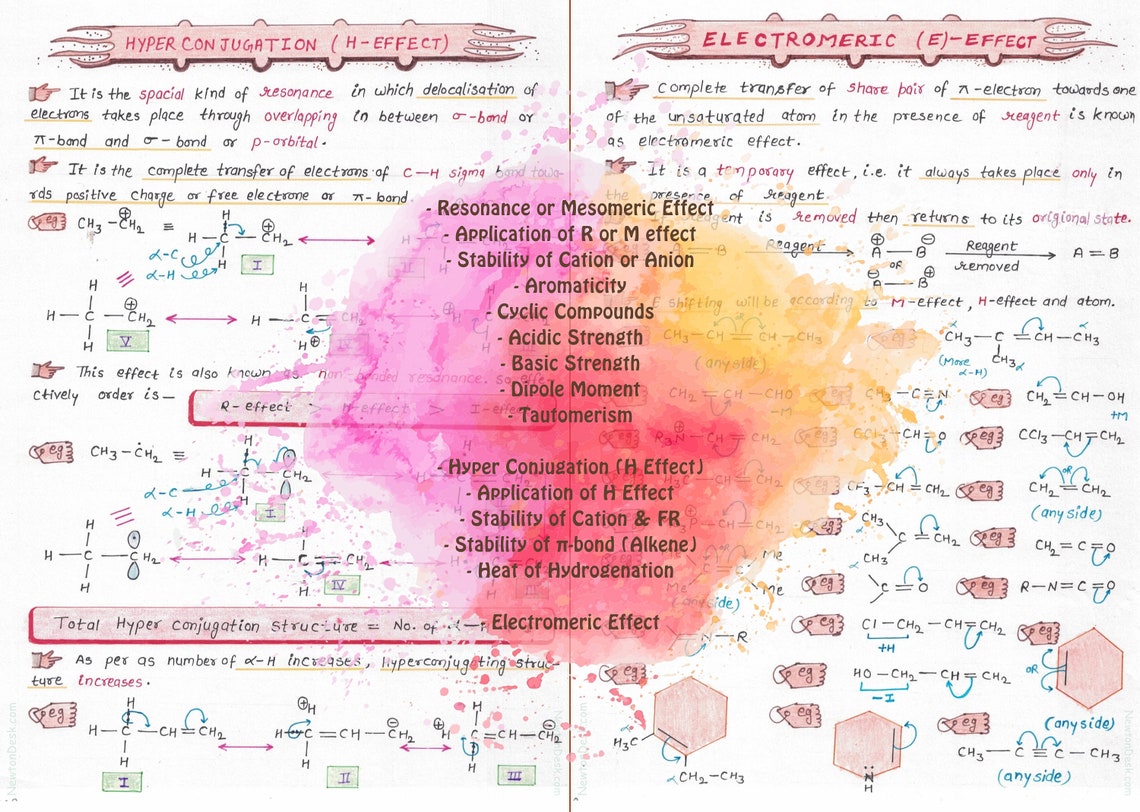 HYPER CONJUGATION ( H-EFFECT)
It is the spacial kind of resonance in which delocalisation of
electrons takes place through overlapping in between σ-bond or
π-bond and σ-bond or p-orbital.
It is the complete transfer of electrons of C–H sigma bond towa-
rds positive charge or free electrone or π-bond
eg CH₃–CH₂ ⊕ ≡ H C CH₂ ⊕ H H
α-C
α-H
I
II
H
H – C – CH₂ ⊕
H
V
H
H C CH₂
H ⊕
IV
This effect is also known as non-bonded resonance. So effe-
ctively order is—
R-effect > H-effect > I-effect
eg CH₃–ĊH₂ ≡ H C CH₂ H H
α-C
α-H
I
H
H – C – CH₂
H
V
H – C CH₂
H
IV
III
Total Hyper Conjugation Structure = No. of α–
As per as number of α-H increases, Hyperconjugating struc-
ture increases.
eg H
H–C–CH=CH₂
H
I
⊕H
H–C=CH–CH₂ ⊖
H
II
H
⊕H C=CH–CH₂ ⊖
H
III
ELECTROMERIC (E)-EFFECT
Complete transfer of share pair of π-electron towards one
of the unsaturated atom in the presence of reagent is known
as electromeric effect.
It is a temporary effect, i.e. it always takes place only in
the presence of reagent.
reagent is removed then returns to its origional state.
eg A B Reagent ⊕ A – B ⊖ OR A – B ⊕ Reagent removed A = B
E shifting will be according to M-effect, H-effect and atom.
CH₃–CH=CH–CH₃ OR
(any side)
eg α CH₃–C=CH–CH₃ α
CH₃ α
(More α-H)
eg CH₂=CH–CHO
–M
eg CH₃–C≡N
eg CH₂=CH–OH
+M
eg R₃N⊕–CH=CH₂
eg CCl₃–CH=O
eg CCl₃–CH=CH₂
eg CF₃–CH=CH₂
eg CH₂=CH₂ OR
(any side)
P–CH=CH₂
eg CH₃ α
C=CH₂
CH₃ α
eg CH₂=C=O
Me
Me
(any side)
eg C=O
α
eg R–N=C=O
N–R
eg Cl–CH₂–CH=CH₂
+H
eg OR
(any side)
eg H₃C
CH₂–CH₃
α
eg HO–CH₂–CH=CH₂
–I
eg N
H
eg CH₃–C≡C–CH₃ OR
(any side)
- Resonance or Mesomeric Effect
- Application of R or M effect
- Stability of Cation or Anion
- Aromaticity
- Cyclic Compounds
- Acidic Strength
- Basic Strength
- Dipole Moment
- Tautomerism
- Hyper Conjugation (H Effect)
- Application of H Effect
- Stability of Cation & FR
- Stability of π-bond (Alkene)
- Heat of Hydrogenation
- Electromeric Effect
NewtonDesk.com
NewtonDesk.com